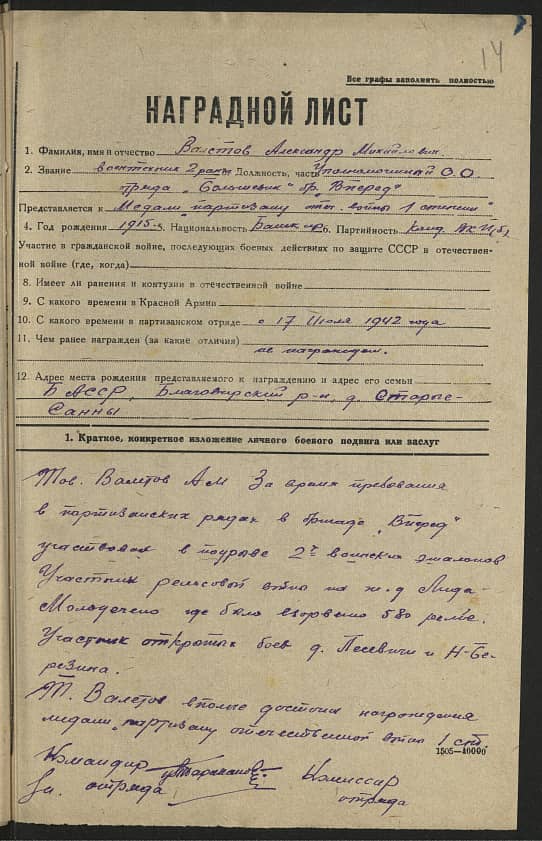 14
Все графы заполнять полностью
НАГРАДНОЙ ЛИСТ
1. Фамилия, имя и отчество Валетов Александр Михайлович.
2. Звание воентехник 2 ранга Должность, часть Уполномоченный О.О.
отряда „Большевик" бр. „Вперед"
Представляется к Медали „партизану отеч. войны 1 степени"
4. Год рождения 1915 5. Национальность Башкир 6. Партийность Канд. ВКП(б)
Участие в гражданской войне, последующих боевых действиях по защите СССР в отечествен-
ной войне (где, когда)
8. Имеет ли ранения и контузии в отечественной войне
9. С какого времени в Красной Армии
10. С какого времени в партизанском отряде с 17 Июля 1942 года
11. Чем ранее награжден (за какие отличия) не награжден.
12. Адрес места рождения представляемого к награждению и адрес его семьи
БАССР, Благоварский р-н, д. Старые-
Санны
1. Краткое, конкретное изложение личного боевого подвига или заслуг
Тов. Валетов А М За время пребования
в партизанских рядах в бригаде „Вперед"
участвовал в подрыве 2х воинских эшалонов
Участник рельсовой войны на ж.д Лида
Молодечено где было взорвено 580 рельс.
Участник открытых боев д. Песевичи и Н-Бе-
резина.
Т. Валетов вполне достоин награждения
медали „партизану отечественной войны 1 ст.
1505—10000
Командир Комиссар
отряда отряда